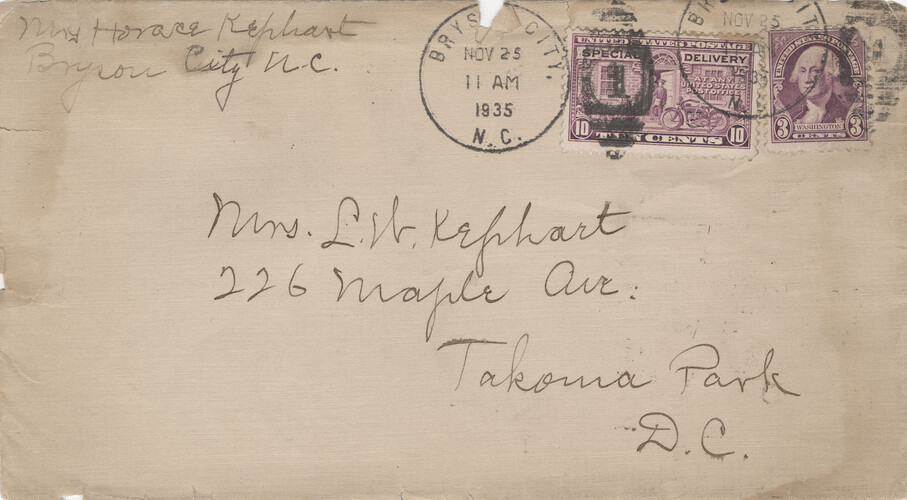 Mrs Horace Kephart
Bryson City N.C.
BRYSON CITY.
NOV 25
11 AM
1935
N.C.
UNITED STATES POSTAGE
SPECIAL DELIVERY
AT ANY
UNITED STATES
POST OFFICE
10 TEN CENTS 10
1
NOV 25
1935
N.
3 WASHINGTON 3
CENTS
Mrs. L.W. Kephart
226 Maple Ave.
Takoma Park
D.C.